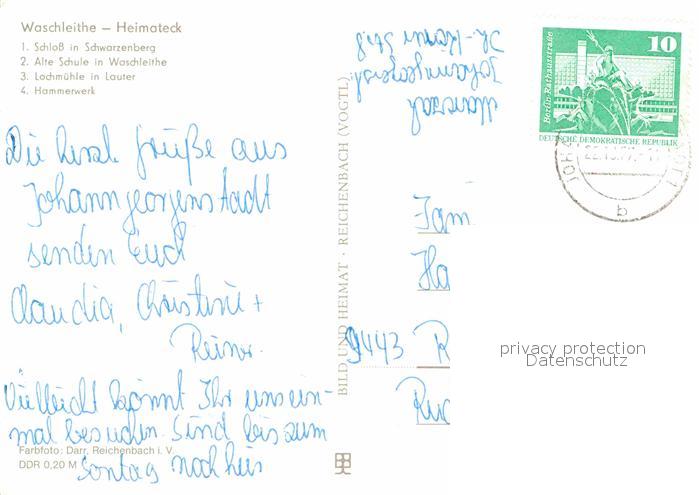 Waschleithe – Heimateck
1. Schloß in Schwarzenberg
2. Alte Schule in Waschleithe
3. Lochmühle in Lauter
4. Hammerwerk
Die herzl. Grüße aus
Johanngeorgenstadt
senden Euch
Claudia, Christine +
Reiner.
Vielleicht könnt Ihr uns ein-
mal besuchen. Sind bis zum
Sontag noch hier
Farbfoto: Darr, Reichenbach i. V.
DDR 0,20 M
BILD UND HEIMAT · REICHENBACH (VOGTL)
Fam
Ha
9443 R
Berlin-Rathausstraße
10
DEUTSCHE DEMOKRATISCHE REPUBLIK
b
privacy protection
Datenschutz